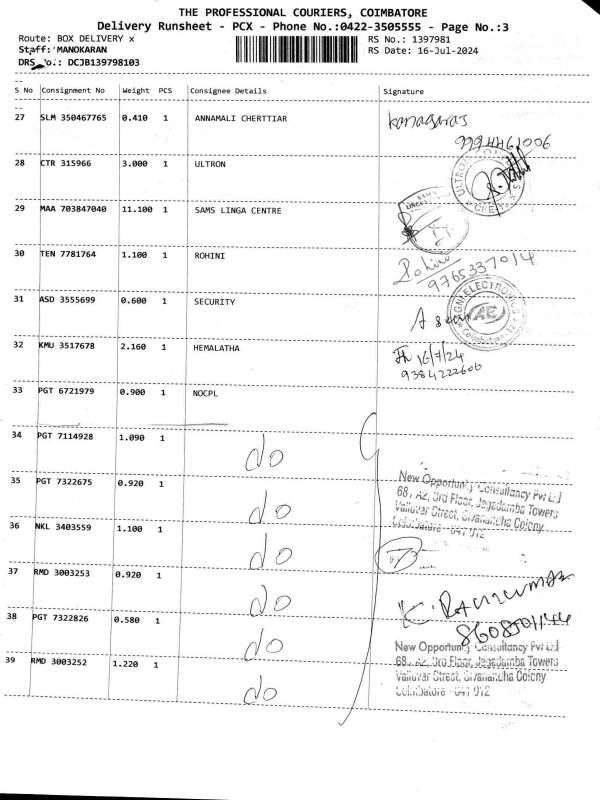 THE PROFESSIONAL COURIERS, COIMBATORE
Delivery Runsheet - PCX - Phone No.:0422-3505555 - Page No.:3
Route: BOX DELIVERY x RS No.: 1397981
Staff: MANOKARAN RS Date: 16-Jul-2024
DRS No.: DCJB139798103
S No Consignment No Weight PCS Consignee Details Signature
27 SLM 350467765 0.410 1 ANNAMALI CHERTTIAR kanagaras
28 CTR 315966 3.000 1 ULTRON
29 MAA 703847040 11.100 1 SAMS LINGA CENTRE
30 TEN 7781764 1.100 1 ROHINI Rohini
9765337014
31 ASD 3555699 0.600 1 SECURITY
AGNI ELECTRONICS
AE
Coimbatore-12
32 KMU 3517678 2.160 1 HEMALATHA
16/7/24
9384222606
33 PGT 6721979 0.900 1 NOCPL
34 PGT 7114928 1.090 1 do
35 PGT 7322675 0.920 1 do
New Opportunity Consultancy Pvt Ltd
68, A2, 3rd Floor, Jagadamba Towers
Valluvar Street, Sivanandha Colony
Coimbatore - 641 012
36 NKL 3403559 1.100 1 do
37 RMD 3003253 0.920 1 do
38 PGT 7322826 0.580 1 do
New Opportunity Consultancy Pvt Ltd
68, A2, 3rd Floor, Jagadamba Towers
Valluvar Street, Sivanandha Colony
Coimbatore - 641 012
39 RMD 3003252 1.220 1 do